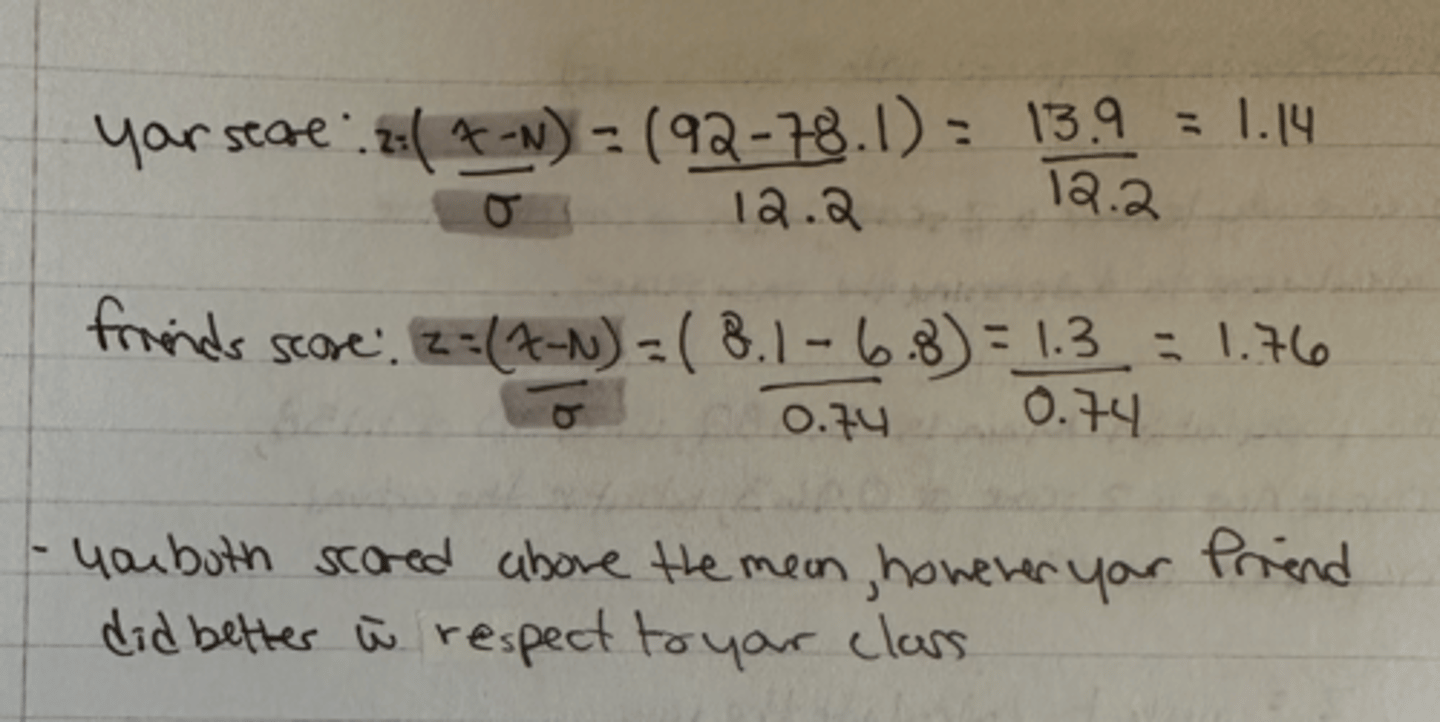 your score: z=(x-N)/σ = (92-78.1)/12.2 = 13.9/12.2 = 1.14
friends score: z=(x-N)/σ = (8.1-6.8)/0.74 = 1.3/0.74 = 1.76
- you both scored above the mean, however your friend
did better in respect to your class